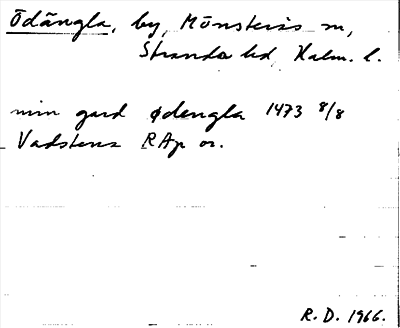 Ödängla, by, Mönsterås sn,
Stranda hd Kalm. l.
min gard ødengla 1473 8/8
Vadstena RAp or.
R.D. 1966.